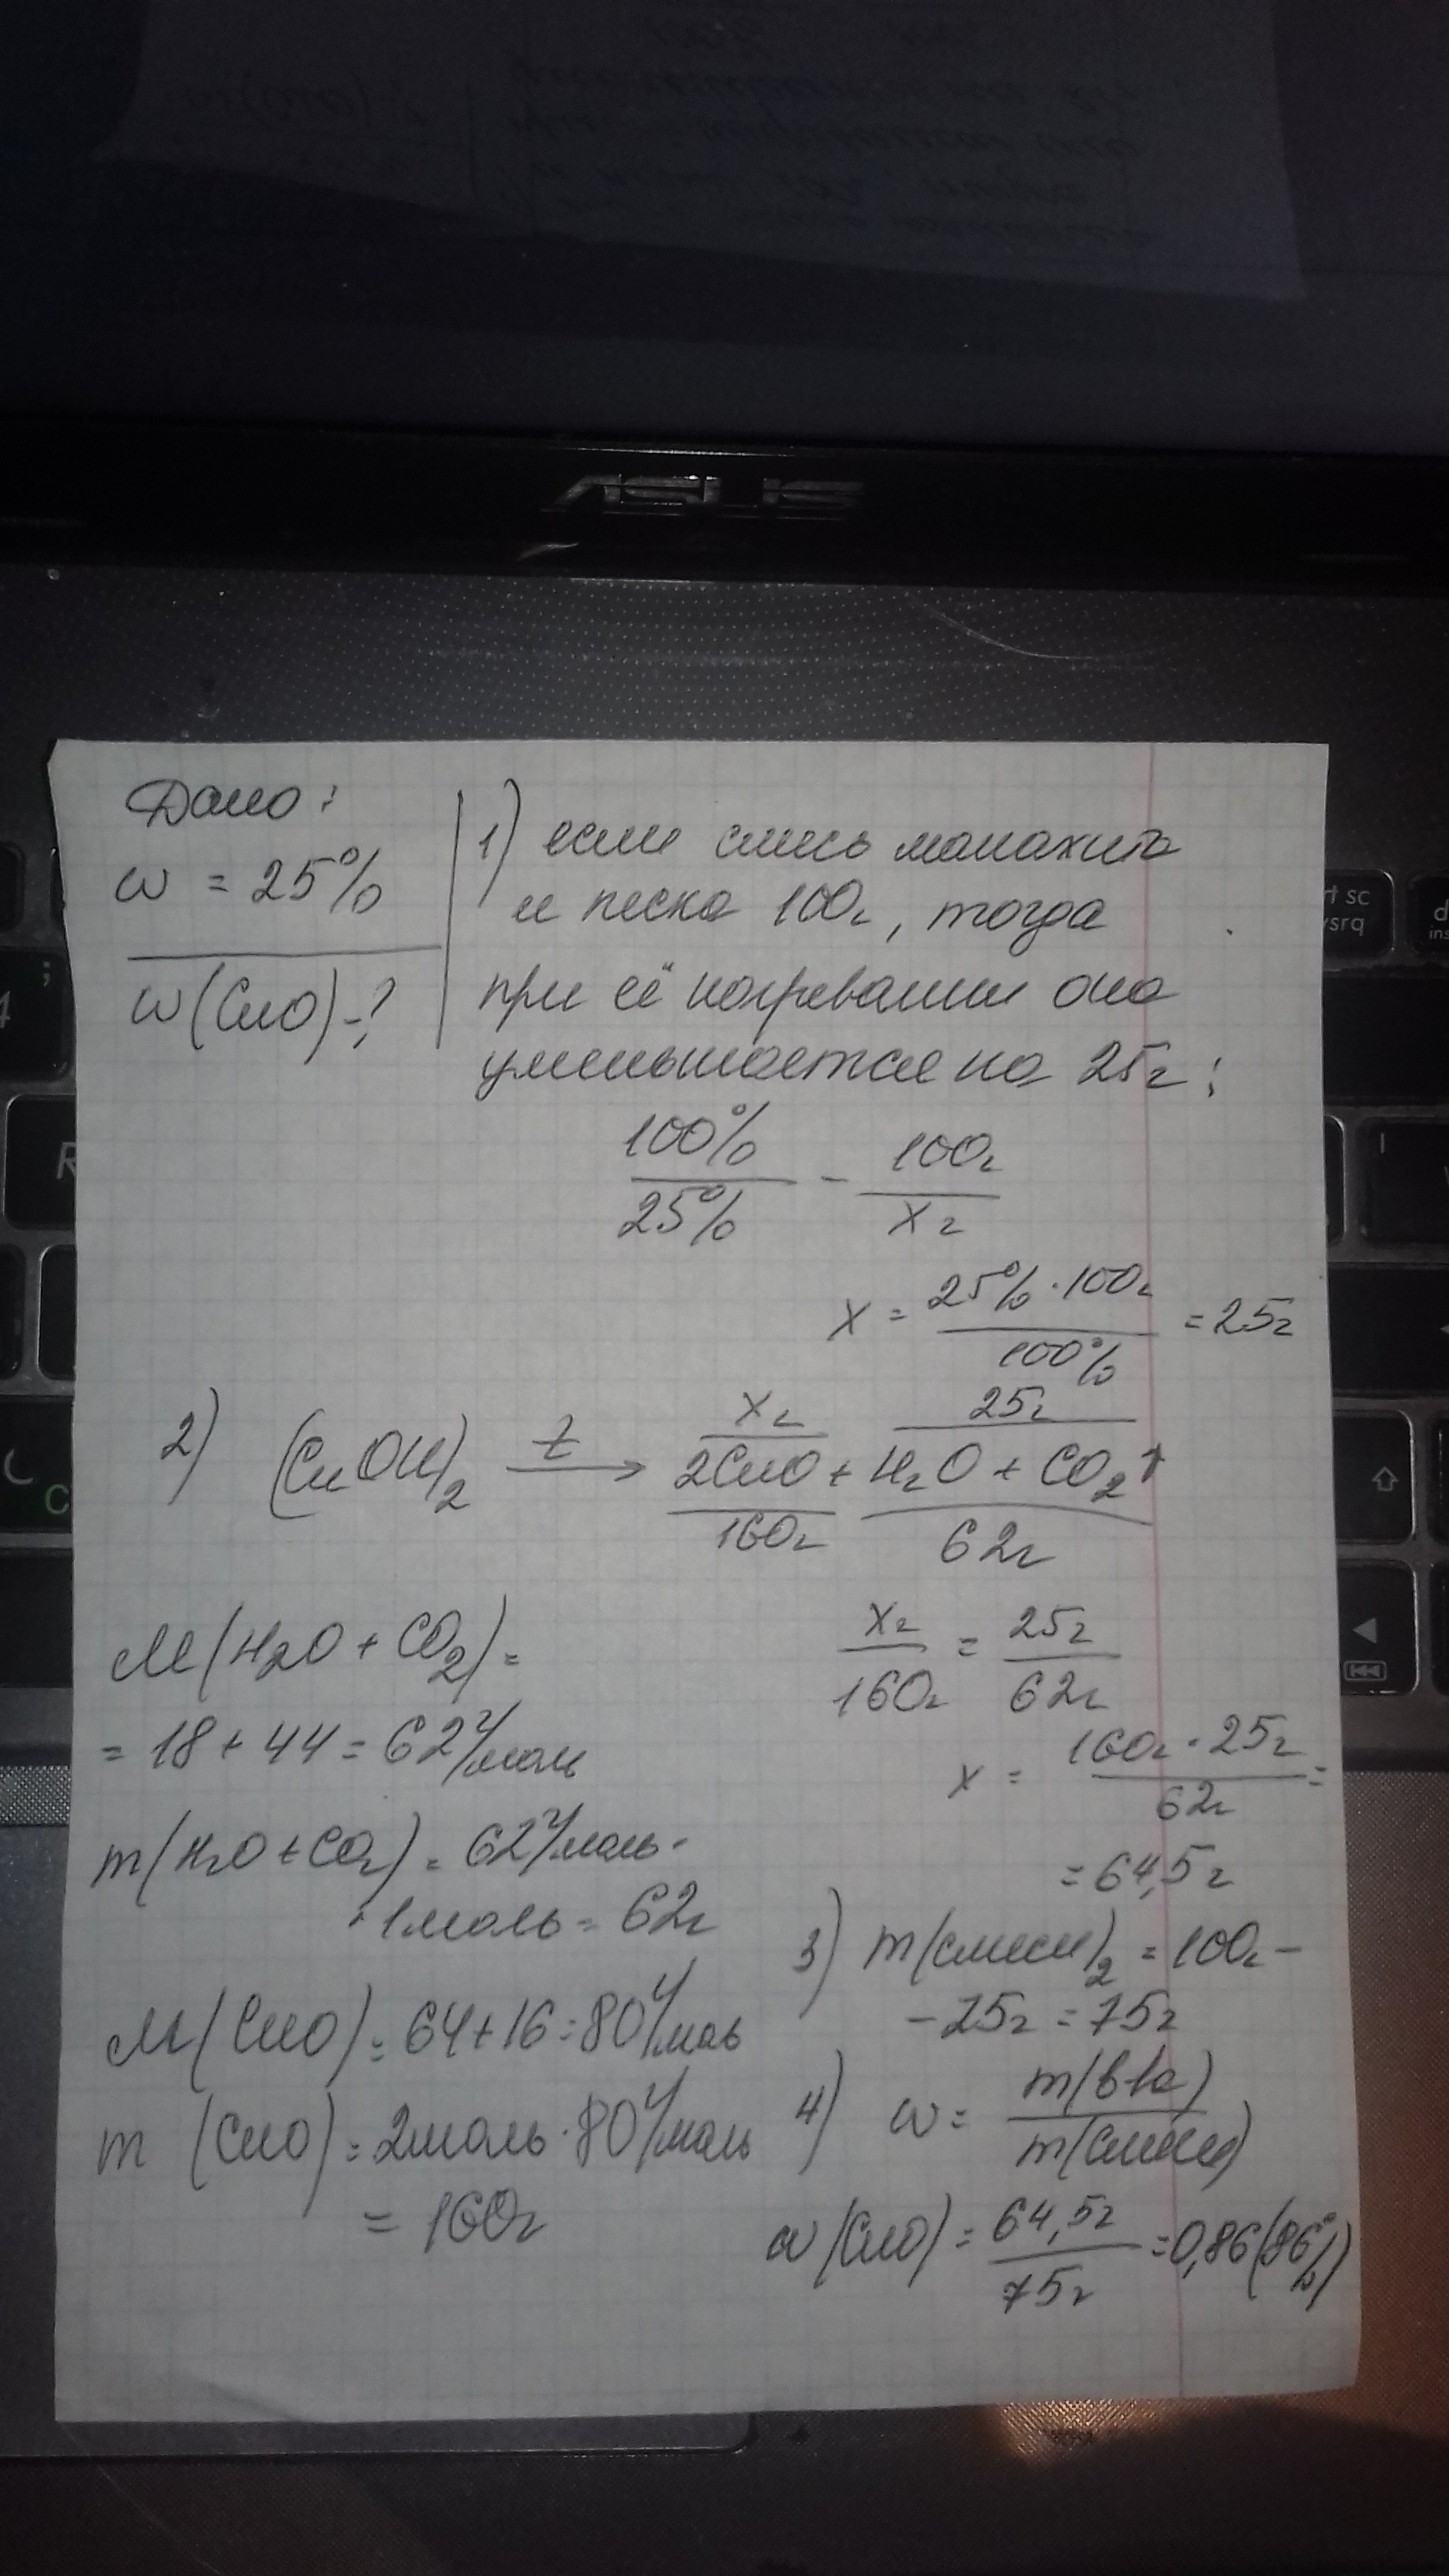 ASUS
Дано:
w = 25%
w(CuO)-?
1) если смесь малахита
и песка 100г, тогда
при её нагревании она
уменьшается на 25г:
100% - 100г
25% x г
x = 25% · 100г = 25г
100%
xг 25г
2) (CuOH)2 t → 2CuO + H2O + CO2↑
160г 62г
M(H2O + CO2) =
= 18 + 44 = 62 г/моль
m(H2O + CO2) = 62 г/моль ·
· 1моль = 62г
M(CuO) = 64 + 16 = 80 г/моль
m (CuO) = 2моль · 80 г/моль
= 160г
xг = 25г
160г 62г
x = 160г · 25г =
62г
= 64,5г
3) m(смеси)2 = 100г -
- 25г = 75г
4) w = m(в-ва)
m(смеси)
w(CuO) = 64,5г = 0,86 (86%)
75г